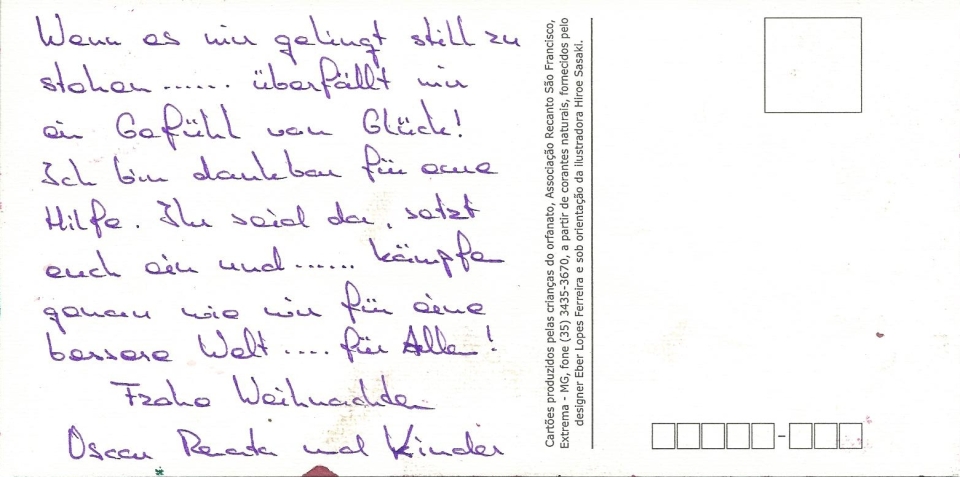 Wenn es mir gelingt still zu
stehen...... überfällt mir
ein Gefühl von Glück!
Ich bin dankbar für eure
Hilfe. Ihr seid da, setzt
euch ein und...... kämpfe
genau wie wir für eine
bessere Welt.... für Alle!
Frohe Weihnachten
Oscar Renata und Kinder
Cartões produzidos pelas crianças do orfanato, Associação Recanto São Francisco,
Extrema - MG, fone (35) 3435-3670, a partir de corantes naturais, fornecidos pelo
designer Eber Lopes Ferreira e sob orientação da ilustradora Hiroe Sasaki.